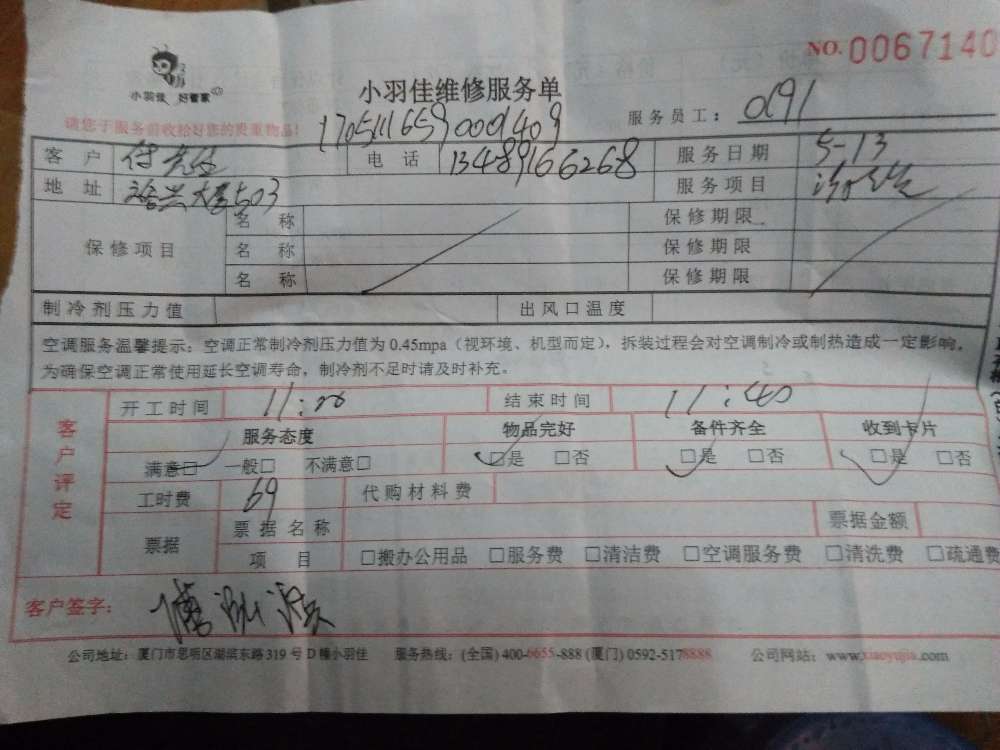 NO. 0067140
小羽佳 好管家
小羽佳维修服务单
服务员工： 0191
请您于服务前收拾好您的贵重物品！
17051116590001409
客户 付先生 电话 13489166268 服务日期 5-13
地址 大厦503 服务项目
保修项目 名称 保修期限
名称 保修期限
名称 保修期限
制冷剂压力值 出风口温度
空调服务温馨提示：空调正常制冷剂压力值为 0.45mpa（视环境、机型而定），拆装过程会对空调制冷或制热造成一定影响，
为确保空调正常使用延长空调寿命，制冷剂不足时请及时补充。
客户评定
开工时间 结束时间 11:40
服务态度 物品完好 备件齐全 收到卡片
满意□ 一般□ 不满意□ □是 □否 □是 □否 □是 □否
工时费 69 代购材料费
票据 票据名称 票据金额
项目 □搬办公用品 □服务费 □清洁费 □空调服务费 □清洗费 □疏通费
客户签字：
公司地址：厦门市思明区湖滨东路 319 号 D 幢小羽佳 服务热线：(全国) 400-6655-888 (厦门) 0592-5178888 公司网站：www.xiaoyujia.com